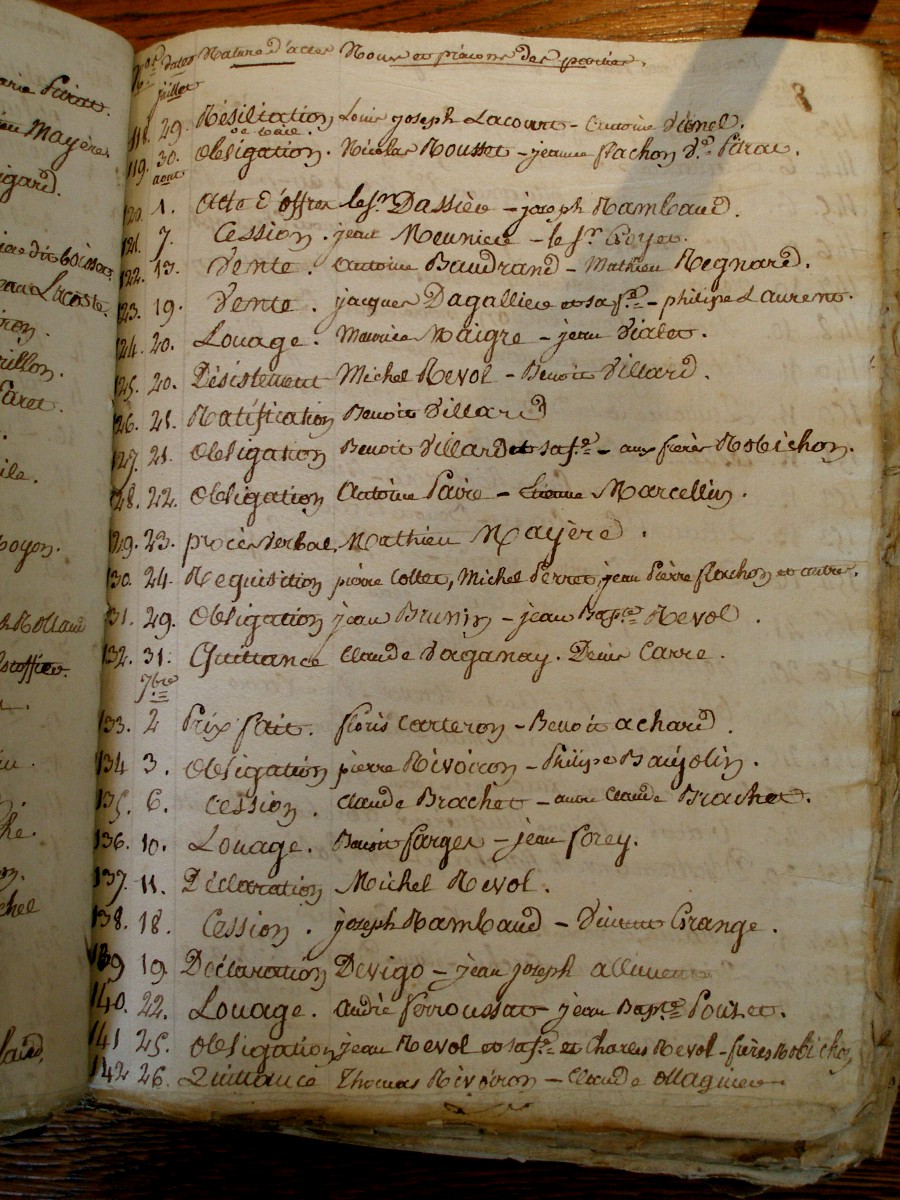 arie Pirat.
Mayère.
igard.
Lacoste.
iron.
rillon.
Faret.
ile.
oyon.
Rolland
he.
chel
land.
Nos dates Nature d'actes Noms et prénoms des parties.
juillet
118. 29. Résiliation Louis joseph Lacourt - Antoine Vianel.
de bail.
119. 30. Obligation. Nicolas Rousset - jeanne flachon Ve. Pirat.
aout
120. 1. Acte d'offres le Sr. Dassieu - joseph Rambaud.
121. 7. Cession. jean Meuniere - le Sr. Croyet.
122. 13. Vente. Antoine Baudrand - Mathieu Regnard.
123. 19. Vente. jacques Dagallieu et sa fe. - philipe Laurent.
124. 20. Louage. Maurice Maigre - jean Vialet.
125. 20. Désistement Michel Revol - Benoit Villard.
126. 21. Ratification Benoit Villard
127. 21. Obligation Benoit Villard et sa fe. - aux frères Robichon.
128. 22. Obligation Antoine Faure - Etienne Marcellin.
129. 23. procès verbal, Mathieu Mayère.
130. 24. Requisition pierre Collet, Michel Perret, jean Pierre flachon et autres.
131. 29. Obligation jean Brunin - jean Bapte. Revol.
132. 31. Quittance Claude Vaganay. Denis Carre.
7bre
133. 2 Prix fait. floris Carteron - Benoit achard.
134 3. Obligation pierre Rivoiron - Philipe Baujolin.
135. 6. Cession. Claude Brachet - autre Claude Brachet.
136. 10. Louage. Benoit farges - jean forey.
137. 11. Déclaration Michel Revol.
138. 18. Cession. joseph Rambaud - Vincent Grange.
139 19. Declaration Devigo - jean joseph
140. 22. Louage. andré ferroussat - jean Bapte. Pouzet.
141 25. Obligation jean Revol et sa fe. et Charles Revol - frères Robichon
142 26. Quittance Thomas Rivoiron - Claude ollagnier